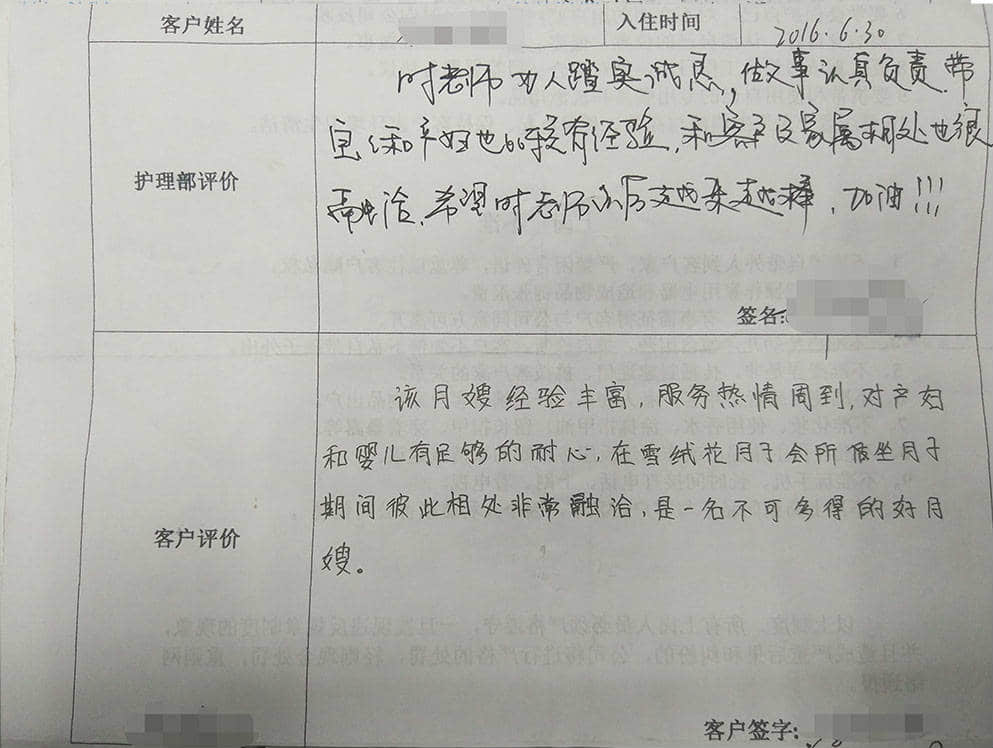 客户姓名 入住时间 2016.6.30
时老师为人踏实诚恳,做事认真负责.带
宝宝和产妇也比较有经验,和客户及家属相处也很
护理部评价
融洽.希望时老师以后越来越棒,加油!!!
签名:
该月嫂经验丰富,服务热情周到,对产妇
和婴儿有足够的耐心,在雪绒花月子会所做坐月子
期间彼此相处非常融洽,是一名不可多得的好月
客户评价
嫂。
客户签字: